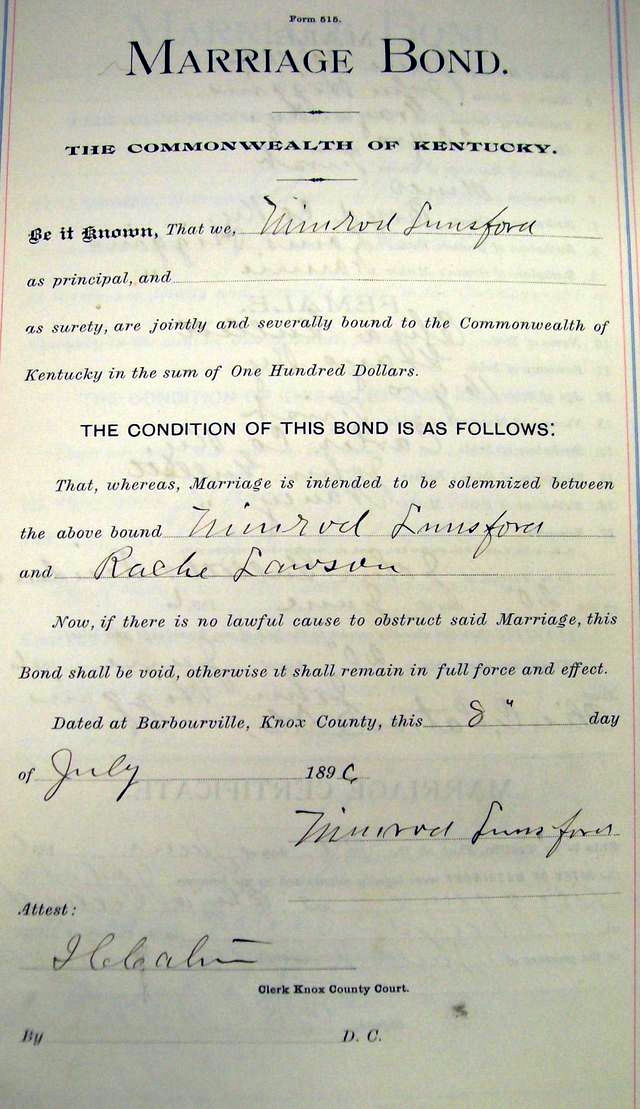 Form 515.
MARRIAGE BOND.
THE COMMONWEALTH OF KENTUCKY.
Be it Known, That we, Nimrod Lunsford
as principal, and
as surety, are jointly and severally bound to the Commonwealth of
Kentucky in the sum of One Hundred Dollars.
THE CONDITION OF THIS BOND IS AS FOLLOWS:
That, whereas, Marriage is intended to be solemnized between
the above bound Nimrod Lunsford
and Rache Lawson
Now, if there is no lawful cause to obstruct said Marriage, this
Bond shall be void, otherwise it shall remain in full force and effect.
Dated at Barbourville, Knox County, this 8" day
of July 1896
Nimrod Lunsford
Attest:
Clerk Knox County Court.
By D. C.